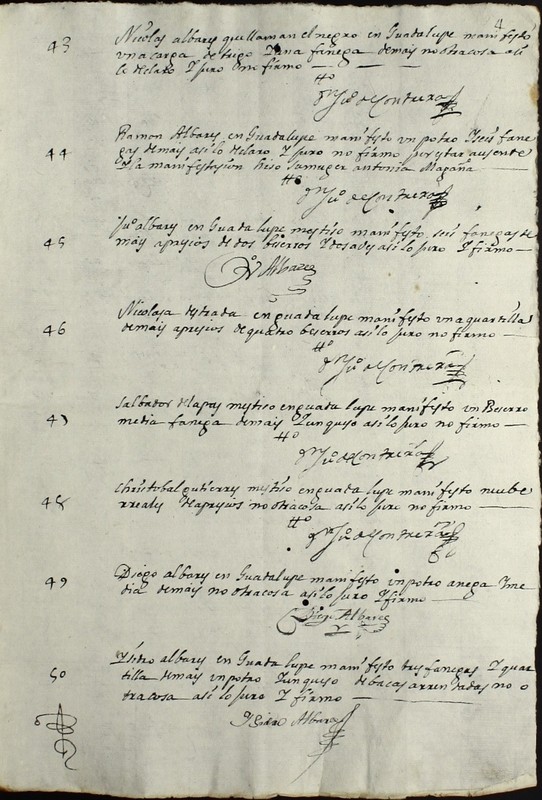 4
43 Nicolas albares que llaman el negro en Guadalupe manifesto
una carga de trigo Y una fanega de mais no otra cosa asi
lo declaro Y juro no firmo
tto
Ju.o de Contreras
44 Ramon Albares en Guadalupe manifesto un potro Y seis fane
gas de mais asi lo declaro Y juro no firmo por estar ausente
esta manifestasion hiso su muger antonia Magaña
tto
Ju.o de Contreras
45 Ju.o albares en Guadalupe mestiso manifesto seis fanegas de
mais apresios de dos beserros Y dos asi lo juro Y firmo
Albares
46 Nicolasa destrada en guadalupe manifesto una quartilla
de mais apresios de quatro beserros asi lo juro no firmo
tto
Ju.o de Contreras
47 salbador mestiso en guadalupe manifesto un Beserro
media fanega de mais Y un queso asi lo juro no firmo
tto
Ju.o de Contreras
48 christobal gutierres mestiso en guadalupe manifesto nuebe
rreales no otra cosa asi lo juro no firmo
tto
Ju.o de Contreras
49 Diego albares en Guadalupe manifesto un potro anega Y me
dia de mais no otra cosa asi lo juro Y firmo
Diego Albares
50 Ysidro albares en Guadalupe manifesto tres fanegas Y quar
tilla de mais un potro Y un queso de bacas arrendadas no o
tra cosa asi lo juro Y firmo
Ysidro Albares